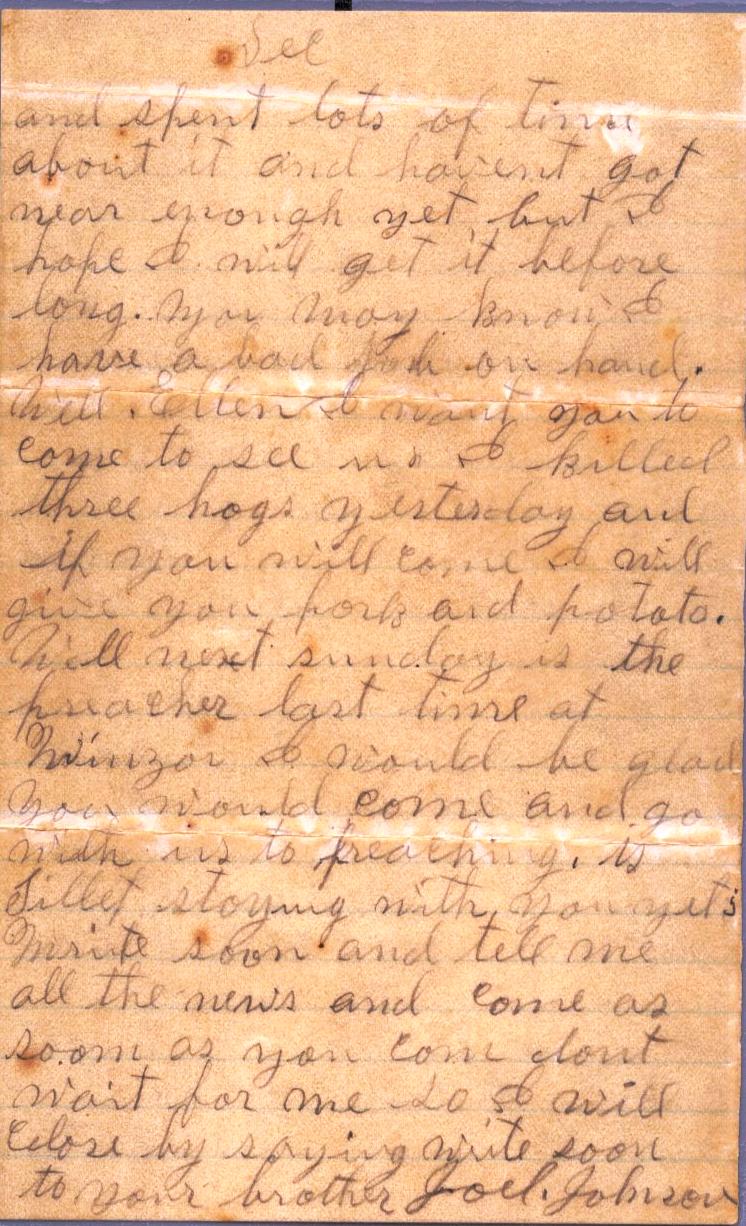 and spent lots of time
about it and havent got
near enough yet, but I
hope I will get it before
long. you may know I
have a bad job on hand.
Well. Ellen I want you to
come to see us I killed
three hogs yesterday and
if you will come I will
give you pork and potato.
Well next sunday is the
preacher last time at
Winzor I would be glad
you would come and go
with us to preaching. is
staying with you yet
Write soon and tell me
all the news and come as
soom as you com dont
wait for me so I will
close by saying write soon
to your brother Joel. Johnson